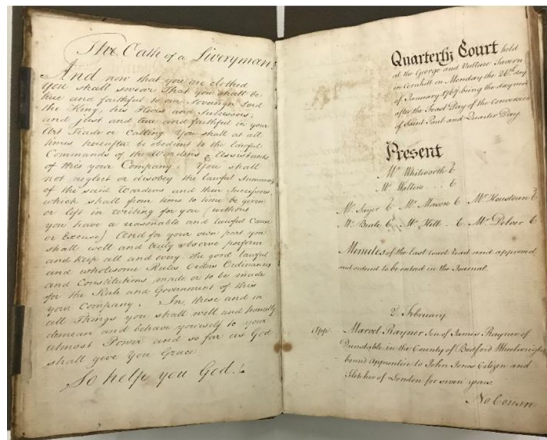 The Oath of a Liveryman
And now that you are clothed
you shall swear That you shall be
true and faithful to our Sovereign Lord
the King, his Heirs and Successors,
and just and true and faithful in your
Art Trade or Calling You shall at all
times hereafter be obedient to the lawful
Commands of the Wardens & Assistants
of this your Company. You shall
not neglect or disobey the lawful Summons
of the said Wardens and their Successors,
which shall from time to time be given
or left in Writing for you (without
you have a reasonable and lawful Cause
or Excuse) And for your own part you
shall well and truly observe perform
and keep all and every the good lawful
and wholesome Rules Orders Ordinances
and Constitutions made or to be made
for the Rule and Government of this
your Company. In these and in
all Things you shall well and honestly
demean and behave yourself to your
utmost Power and so far as God
shall give You Grace
So help you God.
Quarterly Court held
at the George and Vulture Tavern
in Cornhill on Monday the 26th day
of January 1767 being the day next
after the Feast Day of the Conversion
of Saint Paul and Quarter Day.
Present
Mr Whitworth
Mr
Mr Mr Mason Mr
Mr Mr Hill Mr
Minutes of the last Court Read and approved
and ordered to be entred in the Journal.
2 February
App
Marvel Rayner Son of James Rayner of
Dunstable in the County of Bedford
bound Apprentice to John Jones Citizen and
of London for seven years
No Court